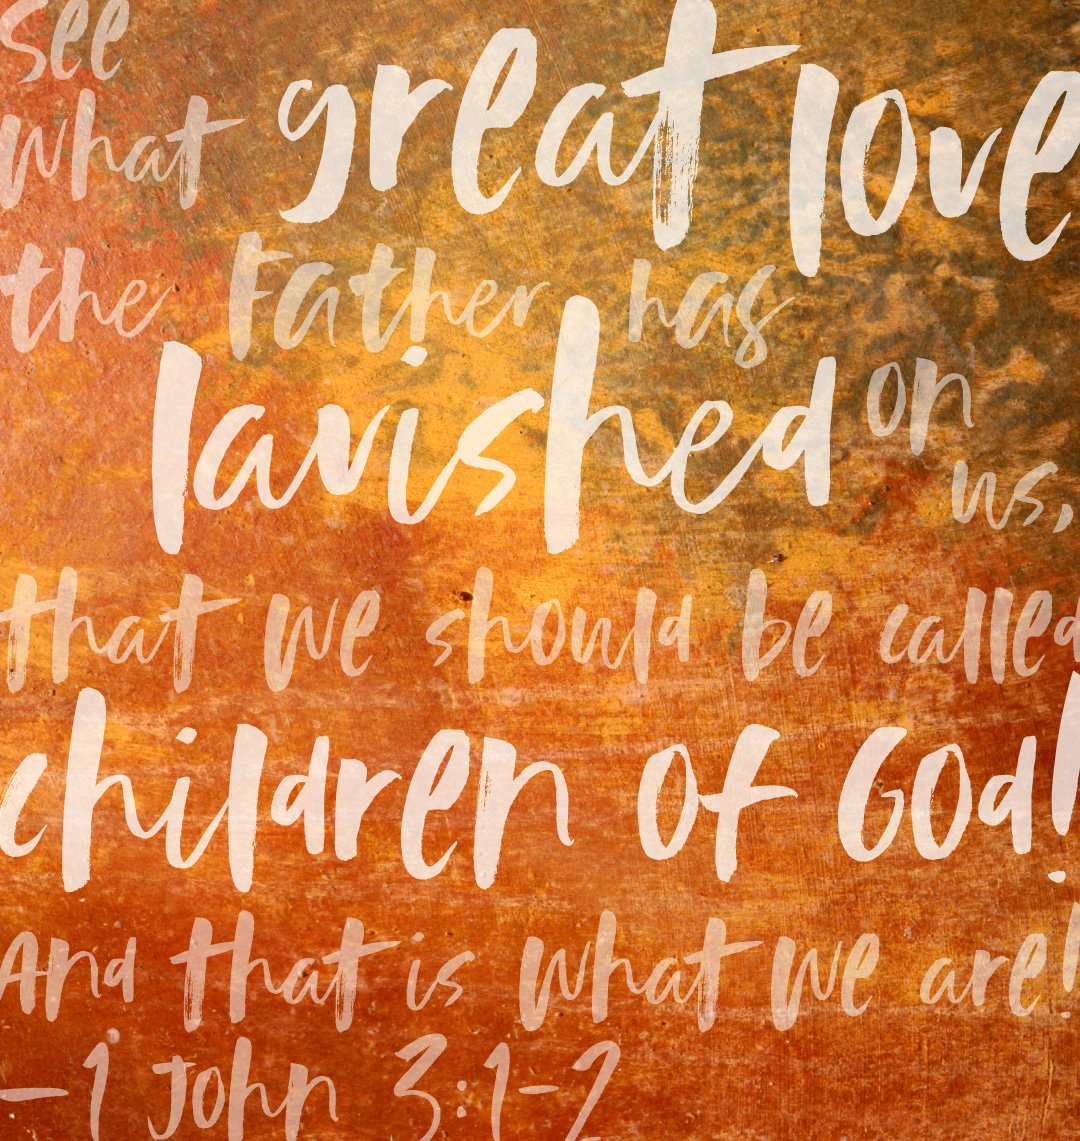 See
what great love
the Father has
lavished on
us,
that we should be called
children of God!
And that is what we are!
–1 John 3:1-2